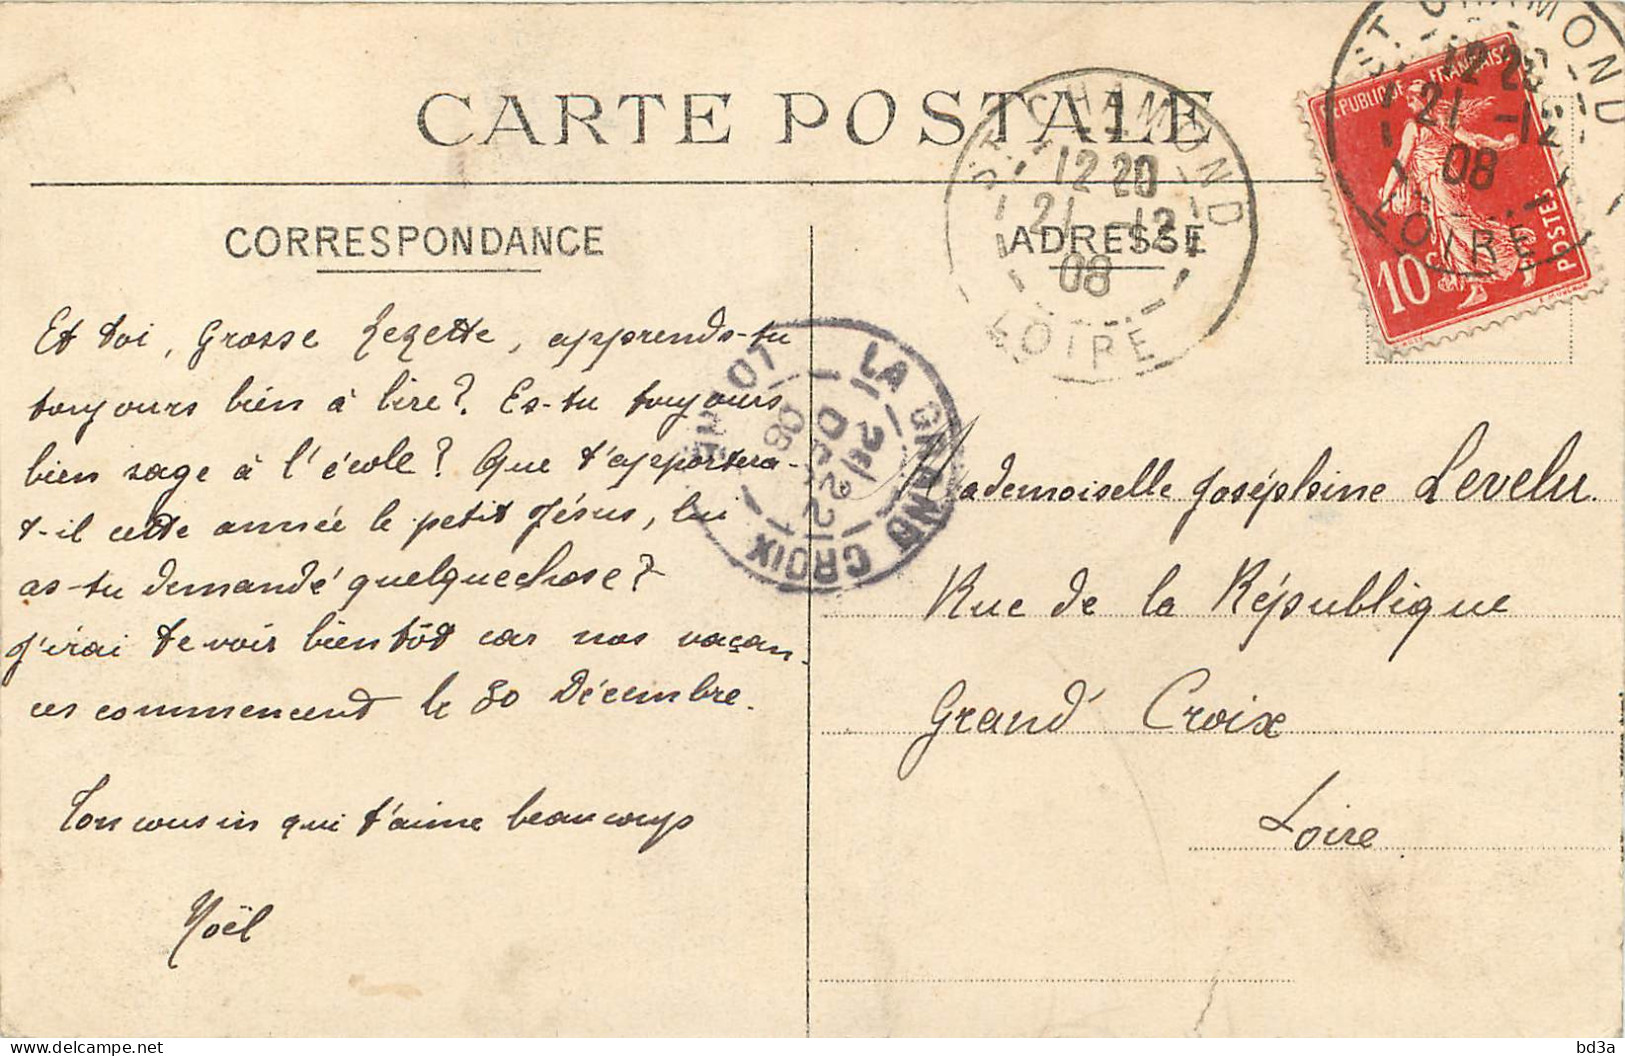 CARTE POSTALE
CORRESPONDANCE
Et toi, Grosse Zezette, apprends-tu
toujours bien à lire? Es-tu toujours
bien sage à l'école? Que t'apportera-
t-il cette année le petit Jésus, lui
as-tu demandé quelquechose?
J'irai te voir bientôt car nos vacan-
ces commencent le 30 Décembre.
Ton cousin qui t'aime beaucoup
Noël
LA GRAND CROIX
ST CHAMOND
12 20
21 -12
08
LOIRE
ADRESSE
ST CHAMOND
12 20
21 -12
08
LOIRE
REPUBLIQUE FRANÇAISE
10c
POSTES
Mademoiselle Joséphine Levelu.
Rue de la République
Grand' Croix
Loire
bd3a